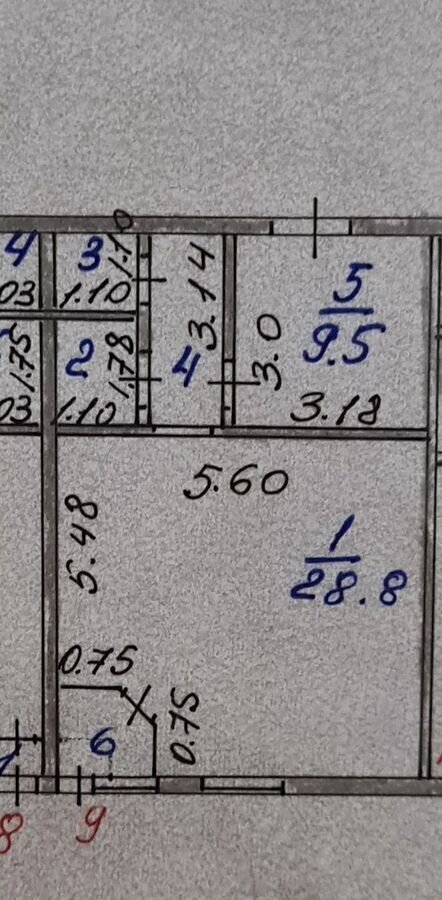 4
3
1.10
03
1.10
3.14
5
9.5
3.0
1.75
2
1.78
4
03
1.10
3.18
5.60
5.48
1
28.8
0.75
0.75
6
8
9